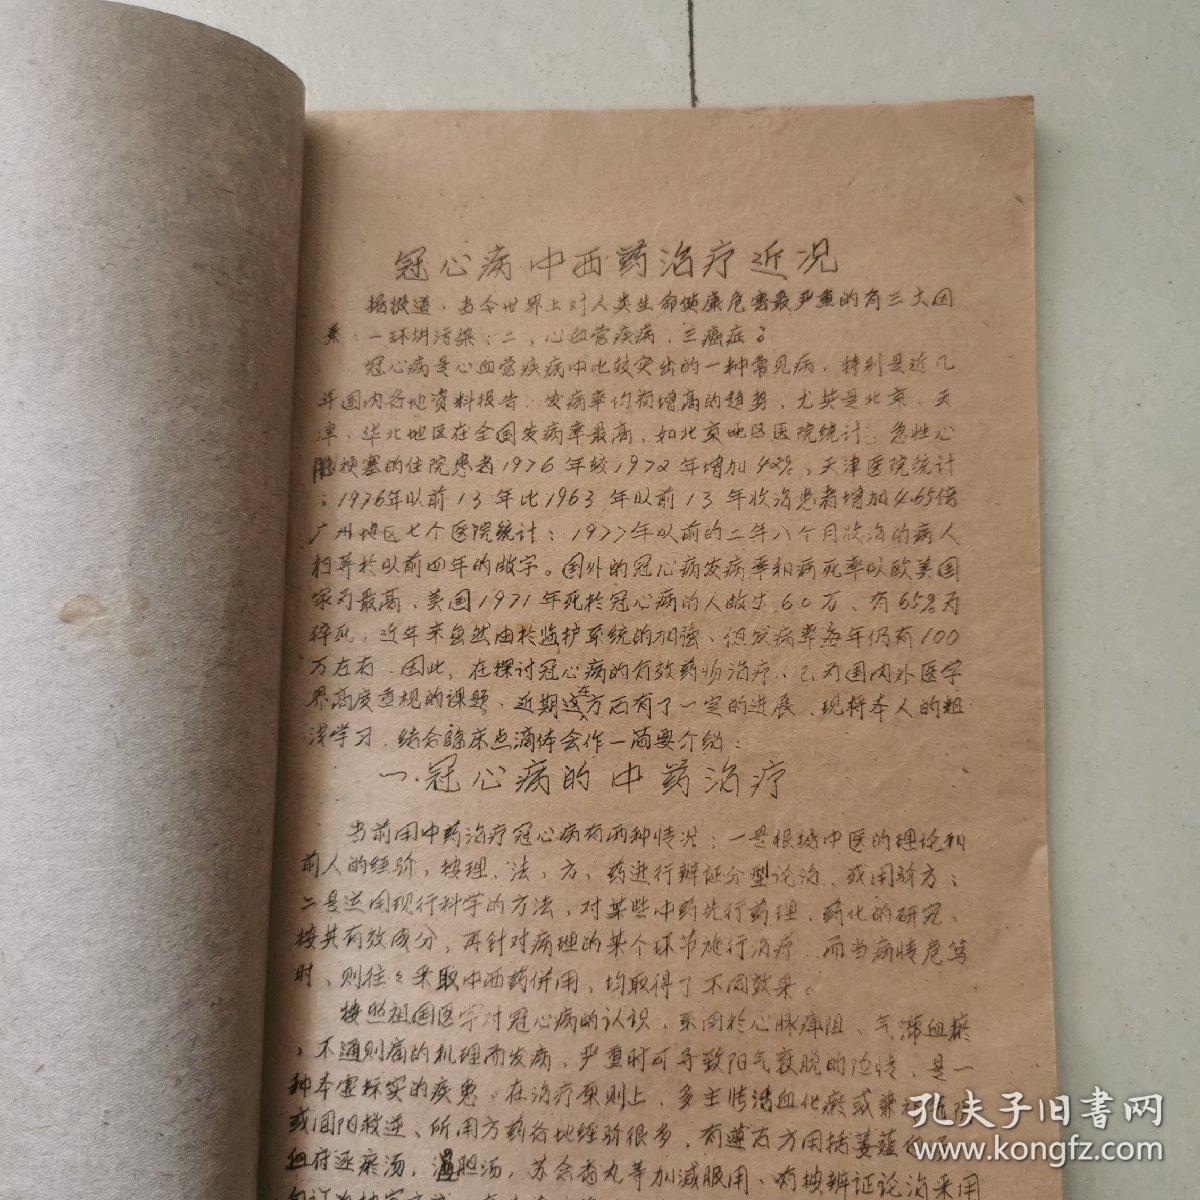 冠心病中西药治疗近况
据报道，当今世界上对人类生命健康危害最严重的有三大因
素：一环圤污染；二，心血管疾病，三癌症。
冠心病是心血管疾病中比较突出的一种常见病，特别是近几
年国内各地资料报告，发病率均有增高的趋势，尤其是北京、天
津、华北地区在全国发病率最高，如北京地区医院统计：急性心
肌梗塞的住院患者1976年较1972年增加42%，天津医院统计
：1976年以前13年比1963年以前13年收治患者增加4.65倍
广州地区七个医院统计：1977年以前的二年八个月收治的病人
相等於以前四年的数字。国外的冠心病发病率和病死率以欧美国
家为最高，美国1971年死於冠心病的人数达60万，有65%为
猝死，近年来虽然由於监护系统的加强，但发病率每年仍有100
万左右．因此，在探讨冠心病的有效药物治疗，已为国内外医学
界高度重视的课题，近期在这方面有了一定的进展，现将本人的粗
浅学习，结合临床点滴体会作一简要介绍：
一.冠心病的中药治疗
当前用中药治疗冠心病有两种情况：一是根据中医的理论和
前人的经验，按理、法、方、药进行辨证分型论治，或用验方；
二是运用现行科学的方法，对某些中药先行药理、药化的研究，
按其有效成分，再针对病理的某个环节施行治疗．而当病情危笃
时，则往々采取中西药併用，均取得了不同效果。
按照祖国医学对冠心病的认识，系由於心脉痹阻、气滞血瘀
，不通则痛的机理而发病，严重时可导致阳气衰脱的险情，是一
种本虚标实的疾患，在治疗原则上，多主张活血化瘀或
或回阳救逆、所用方药各地经验很多，有遵古方用括蒌薤白
血府逐瘀汤，温胆汤，苏合香丸等加减服用、有按辨证论治采用
孔夫子旧书网
www.kongfz.com